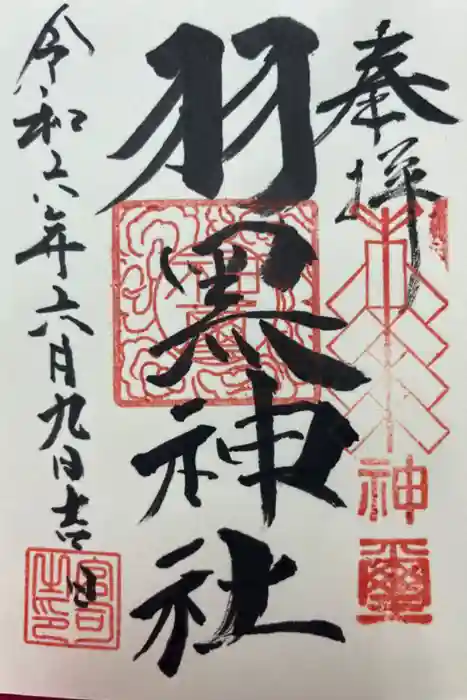 奉拝
羽黒神社
令和六年六月九日吉日
神璽
宮司之印